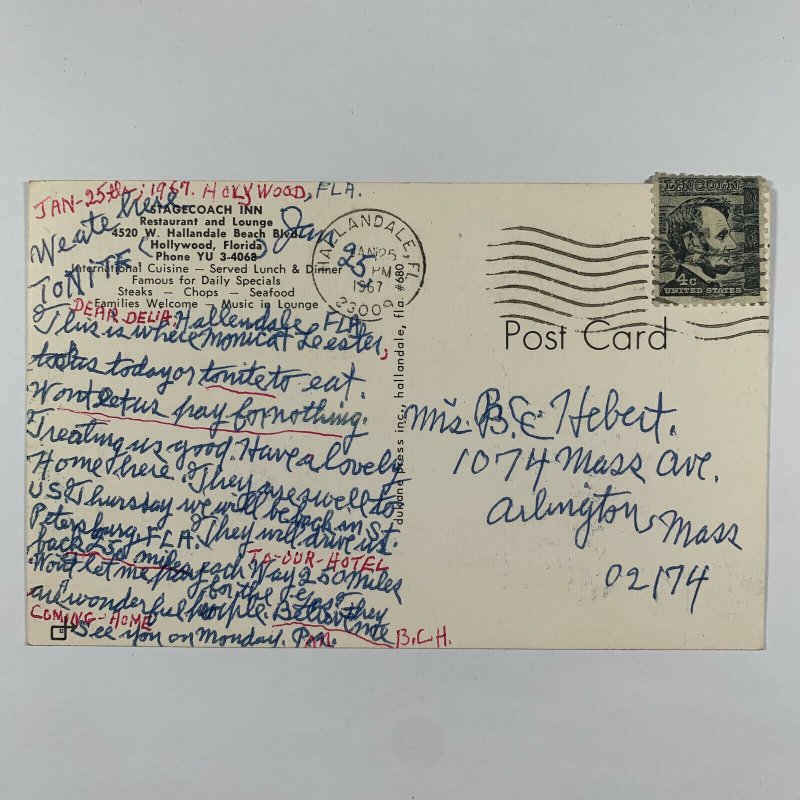 JAN-25th, 1967. HOLYWOOD, FLA.
We ate here
TONITE
Jan
25
STAGECOACH INN
Restaurant and Lounge
4520 W. Hallandale Beach Blvd.
Hollywood, Florida
Phone YU 3-4068
International Cuisine — Served Lunch & Dinner
Famous for Daily Specials
Steaks — Chops — Seafood
Families Welcome — Music in Lounge
DEAR DELIA. Hallendale, FLA
This is where Monica & Leester,
took us today or tonite to eat.
Wont let us pay for nothing.
Treating us good. Have a lovely
Home here. They are swell to
US. Thursday we will be back in St.
Petersburg, FLA. They will drive us.
back 250 miles TO-OUR-HOTEL
Wont let me pay each Way 250 Miles
for the gas. They
are wonderful people. Believe me
COMING-HOME
See you on Monday. P.M.
B.C.H.
dukane press inc., hallandale, fla. #680
HALLANDALE, FL
JAN 26
PM
1967
33009
LINCOLN
4c
UNITED STATES
Post Card
Mrs. B.C. Hebert.
1074 Mass Ave.
Arlington Mass
02174